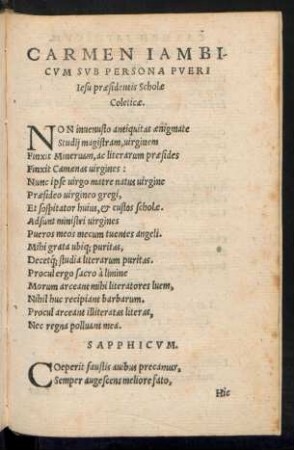 CARMEN IAMBI-
CVM SVB PERSONA PVERI
Iesu præsidentis Scholæ
Coleticæ.
NON inuenusto antiquitas ænigmate
Studij magistram, uirginem
Finxit Mineruam, ac literarum præsides
Finxit Camœnas uirgines:
Nunc ipse uirgo matre natus uirgine
Præsideo uirgineo gregi,
Et sospitator huius, & custos scholæ.
Adsunt ministri uirgines
Pueros meos mecum tuentes angeli.
Mihi grata ubiq; puritas,
Decetq́; studia literarum puritas.
Procul ergo sacro à limine
Morum arceant mihi literatores luem,
Nihil huc recipiant barbarum.
Procul arceant illiteratas literas,
Nec regna polluant mea.
SAPPHICVM.
Coeperit faustis auibus precamur,
Semper augescens meliore fato,
Hic